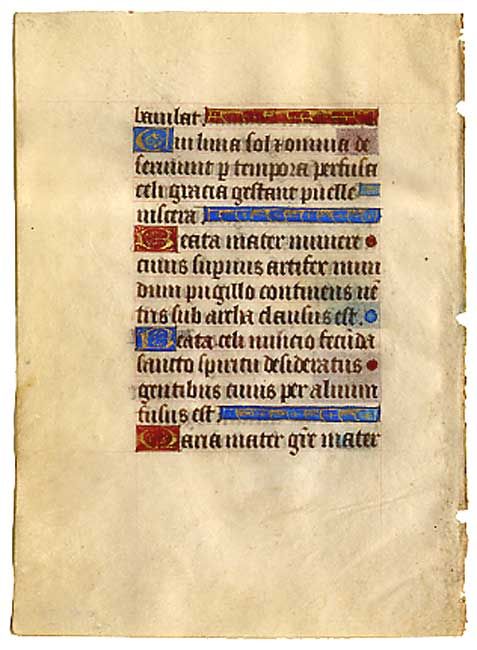 baiulat.
Cui luna sol ⁊ omnia de
seruiunt ꝑ tempora perfusa
celi gracia gestant puelle
uiscera
Beata mater munere
cuius supnus artifex mun
dum pugillo continens uẽ
tris sub archa clausus est.
Beata celi nuncio fecũda
sancto spiritu desideratus
gentibus cuius per aluum
fusus est.
Maria mater gr̃e mater